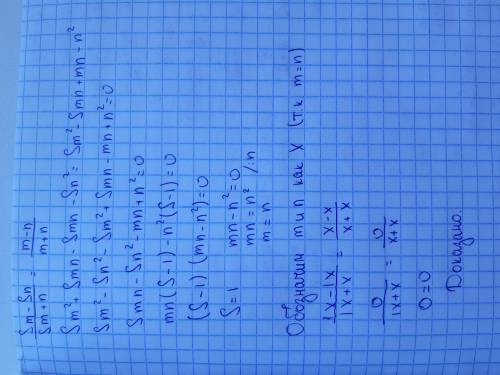 (Sm - Sn)/(Sm + n) = (m - n)/(m + n)
Sm² + Smn - Smn - Sn² = Sm² - Smn + mn - n²
Sm² - Sn² - Sm² + Smn - mn + n² = 0
Smn - Sn² - mn + n² = 0
mn(S-1) - n²(S-1) = 0
(S-1)(mn - n²) = 0
S = 1 mn - n² = 0
mn = n² /:n
m = n
Обозначим m и n как X (т.к m = n)
(1X - 1X)/(1X + X) = (X - X)/(X + X)
0/(1X + X) = 0/(X + X)
0 = 0
Доказано.